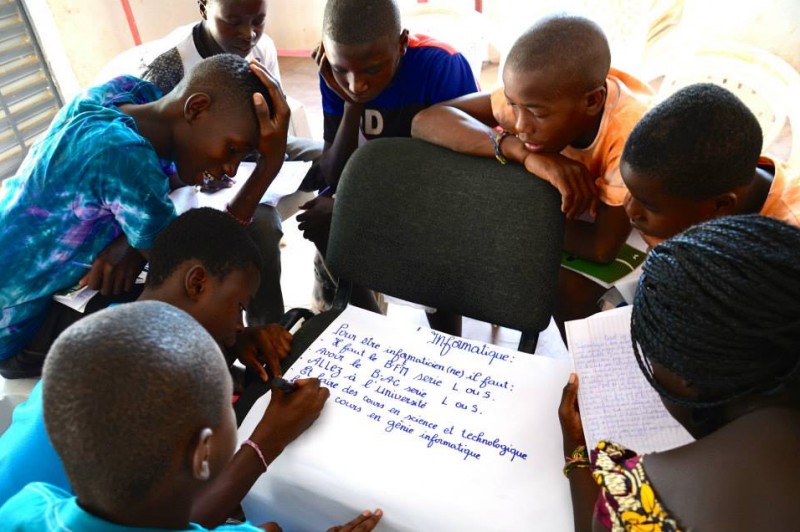 Informatique:
Pour être informaticien(ne) il faut:
Il faut le BFM serie L ou S.
Avoir le BAC serie L ou S.
ALLEZ à l'université
faire des cours en science et technologique
cours en génie informatique
D